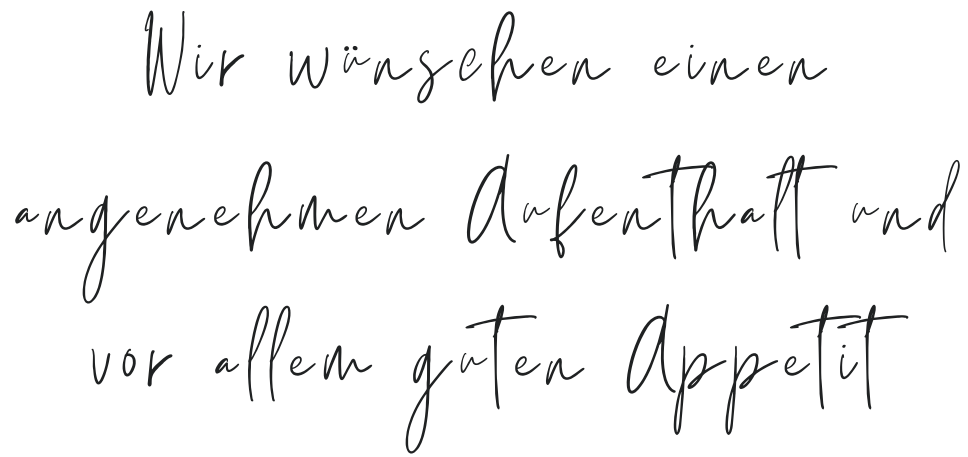 Wir wünschen einen
angenehmen Aufenthalt und
vor allem guten Appetit